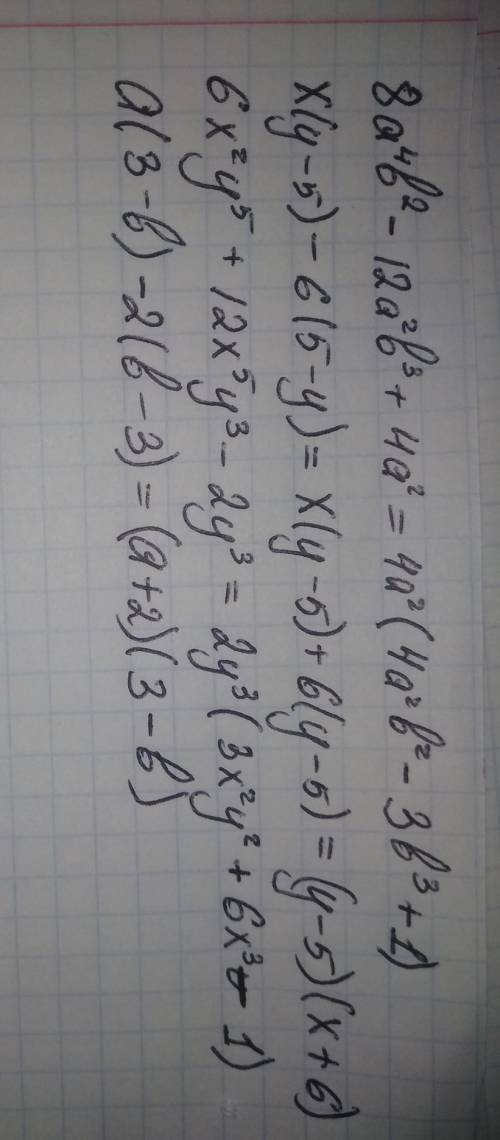 8a⁴b² - 12a²b³ + 4a² = 4a²(4a²b² - 3b³ + 1)
x(y - 5) - 6(5 - y) = x(y - 5) + 6(y - 5) = (y - 5)(x + 6)
6x²y⁵ + 12x⁵y³ - 2y³ = 2y³(3x²y² + 6x³ - 1)
a(3 - b) - 2(b - 3) = (a + 2)(3 - b)